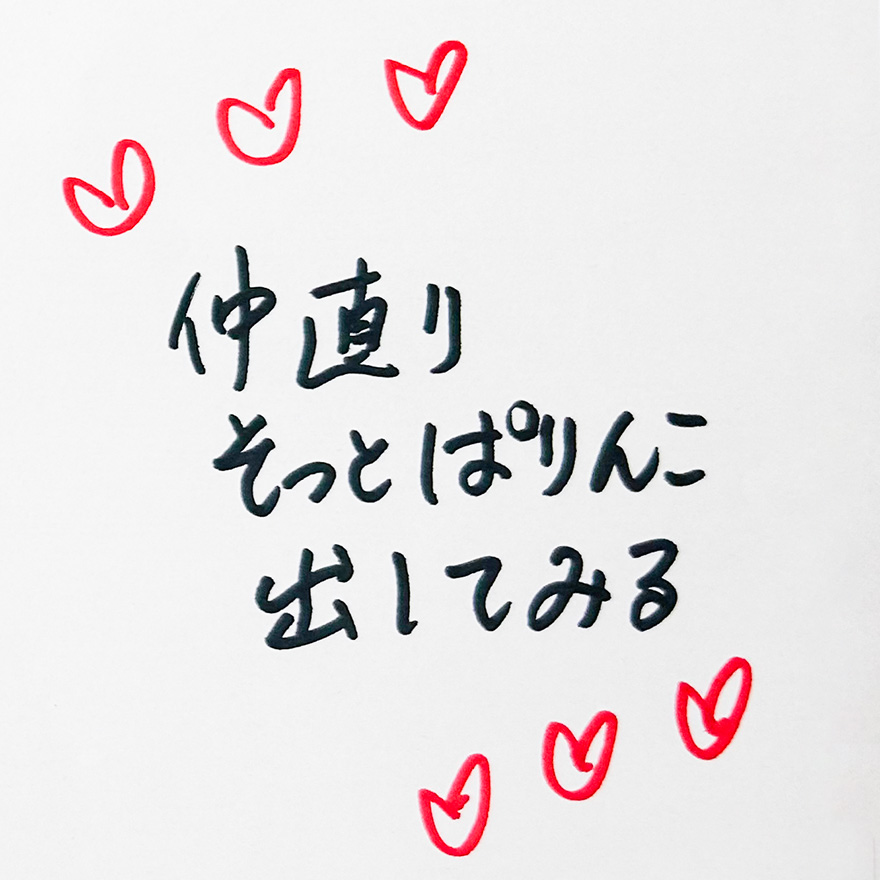 仲直り
そっとぱりんこ
出してみる